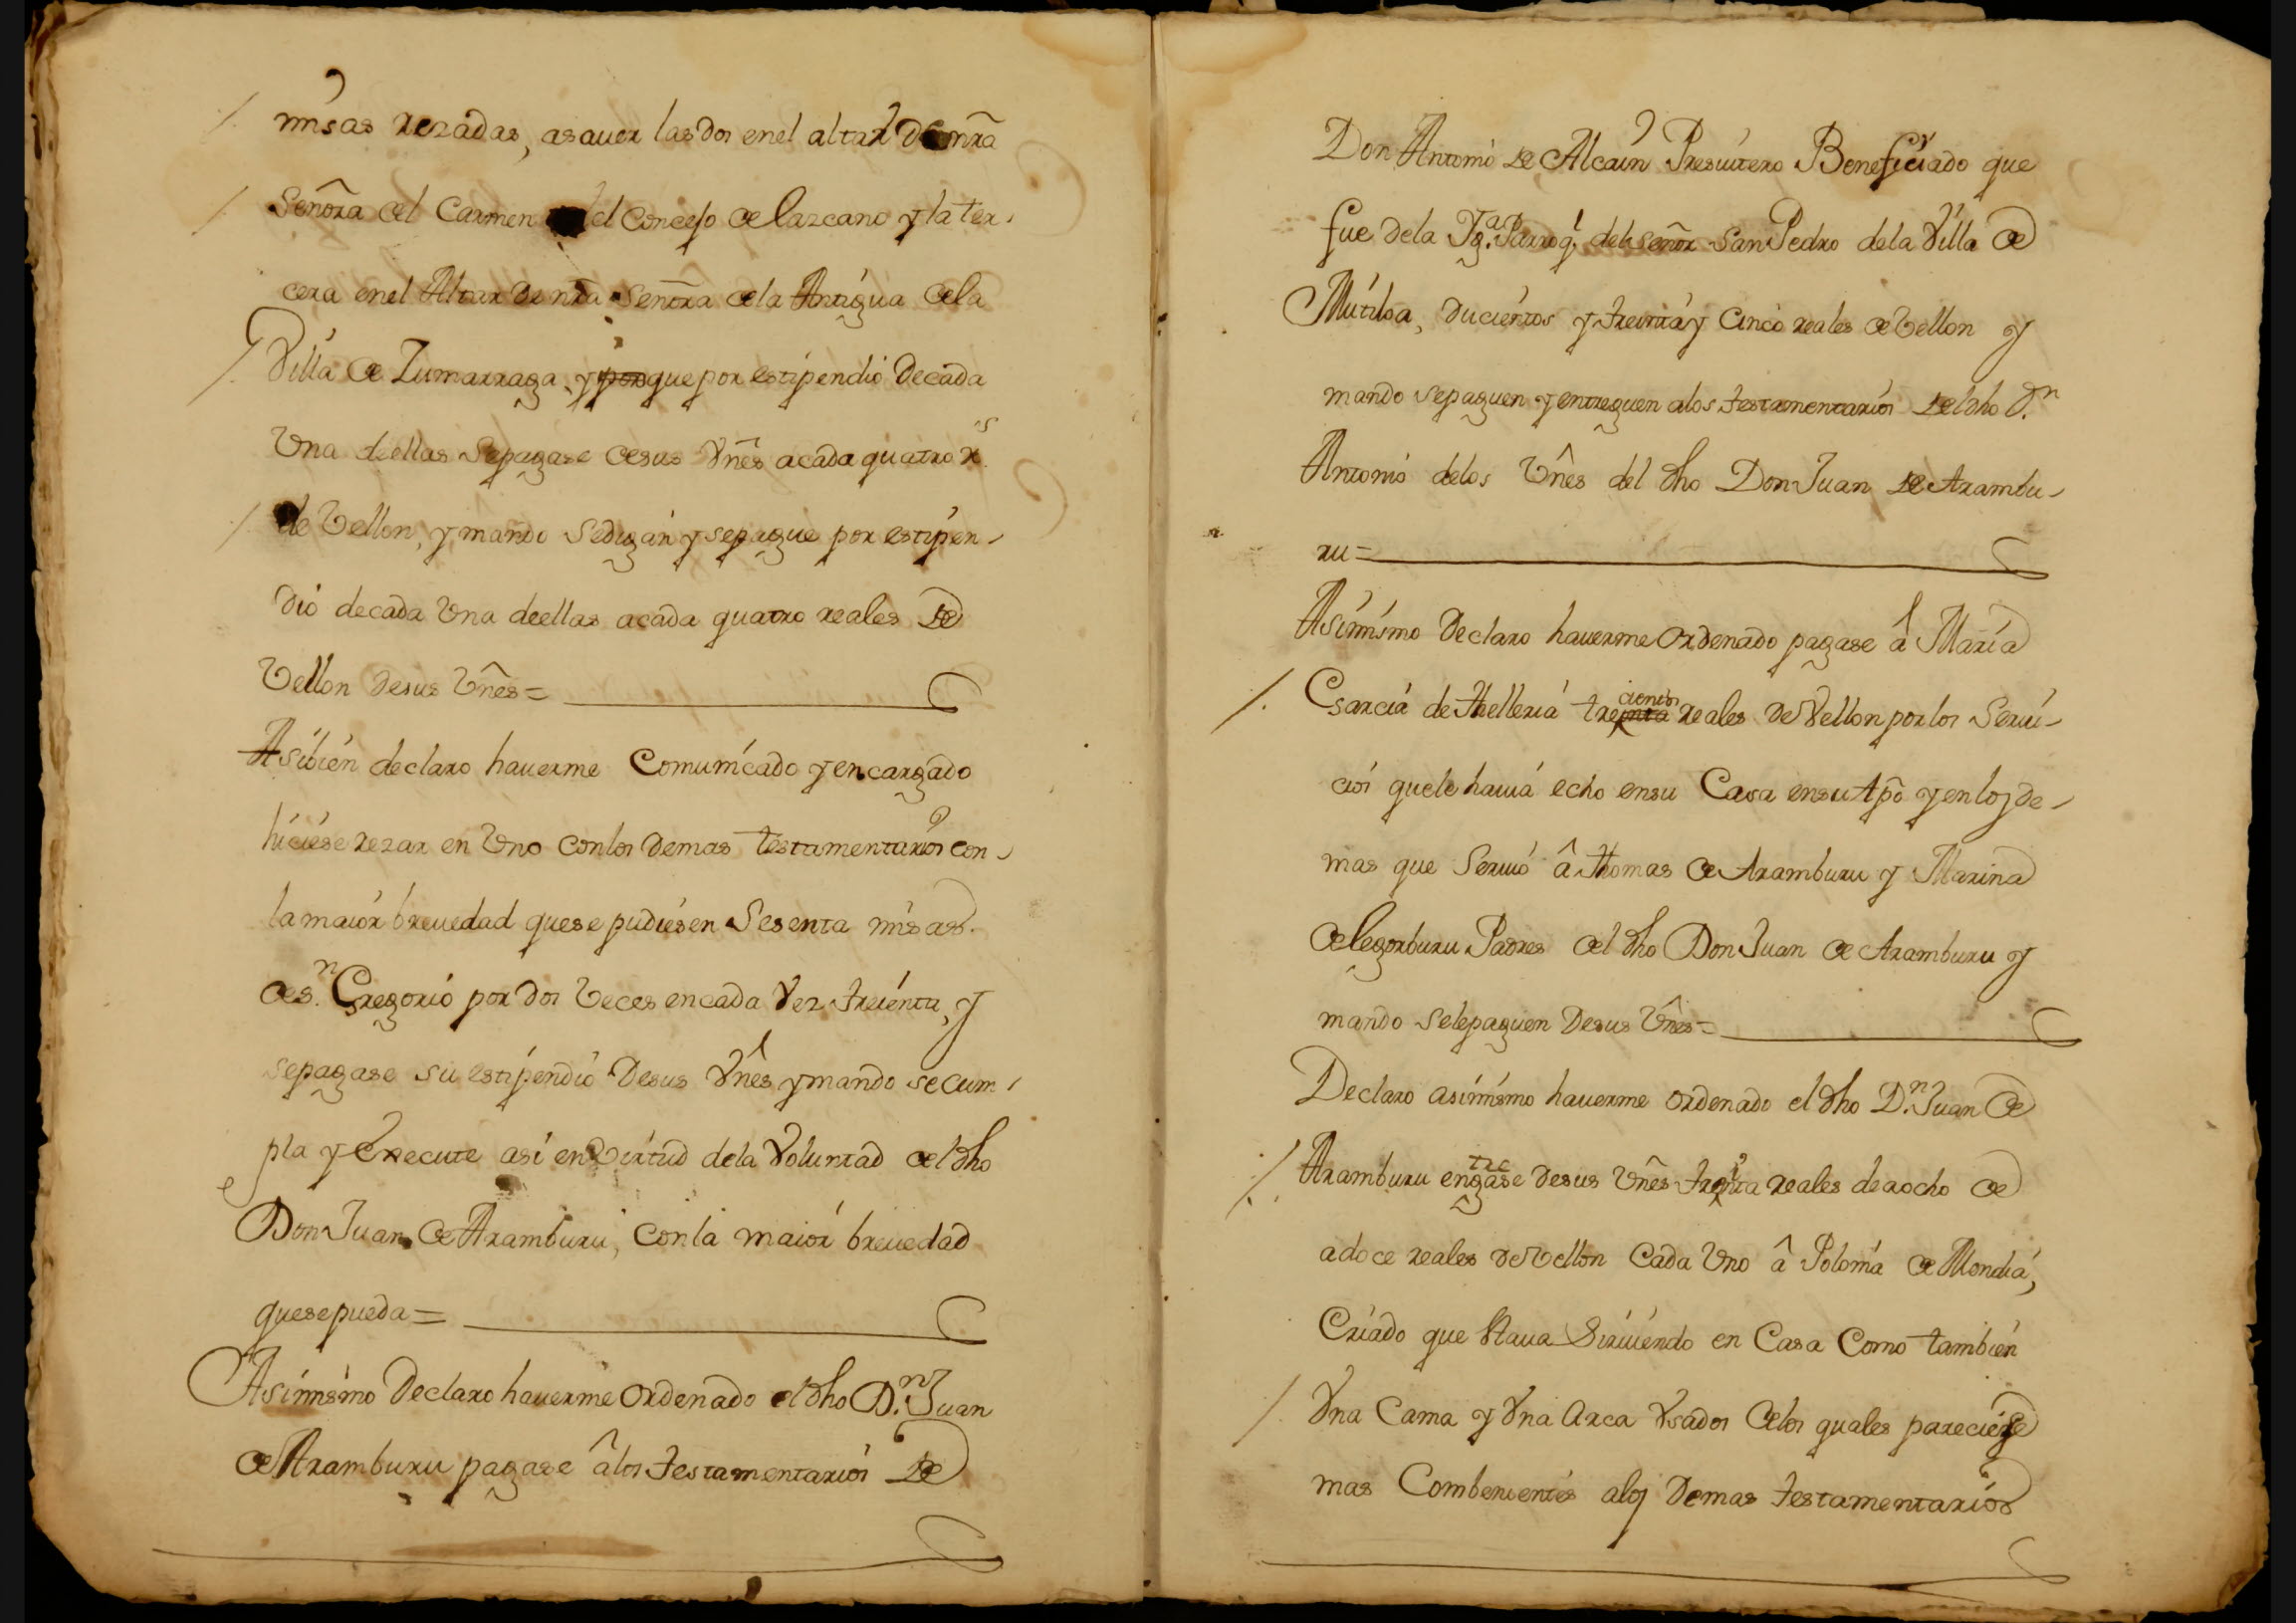 misas rezadas, asauer las dos enel altar de nrã
Señora del Carmen del Concejo de lazcano y la ter-
cera enel Altar de nrã Señora dela Antigua dela
Villa de Zumarraga, y por que por estipendio decada
Vna deellas sepagase desus Vñes acada quatro rs.
de Vellon, y mando sedigan y sepague por estipen-
dio decada Vna deellas acada quatro reales de
Vellon desus Vñes =
Asibien declaro hauerme Comunicado y encargado
hiciese rezar en Vno conlos demas testamentarios con-
la maior breuedad quese pudiesen Sesenta misas
de Sn. Gregorio por dos Veces encada Vez treienta, y
sepagase su estipendio desus Vñes y mando secum-
pla y execute asi en Virtud dela Voluntad del dho
Don Juan de Aramburu, conla maior breuedad
quesepueda =
Asimismo declaro hauerme ordenado el dho Dn. Juan
de Aramburu pagase â los testamentarios de
Don Antonio de Alcain Presuitero Beneficiado que
fue dela Yga. Parroql. del señor San Pedro dela Villa de
Mutiloa, ducientos y treinta y cinco reales de Vellon y
mando sepaguen y entreguen alos testamentarios del dho Dn.
Antonio delos Vñes del dho Don Juan de Arambu-
ru =
Asimismo declaro hauerme ordenado pagase â Maria
Garcia de Thelleria treinta cientos reales de Vellon por los Serui-
cios quele hauia echo ensu Casa ensu tpõ y en los de-
mas que Seruió â Thomas de Aramburu y Marina
de legorburu Padres del dho Don Juan de Aramburu y
mando selepaguen desus Vñes =
Declaro asimismo hauerme ordenado el dho Dn. Juan de
Aramburu entregase desus Vñes treinta reales deaocho de
adoce reales de Vellon Cada Vno â Polonia de Mondia,
Criado que staua Siruiendo en Casa Como tambien
Vna Cama y Vna Arca Vsados delos quales pareciese
mas Combenientes alos demas testamentarios